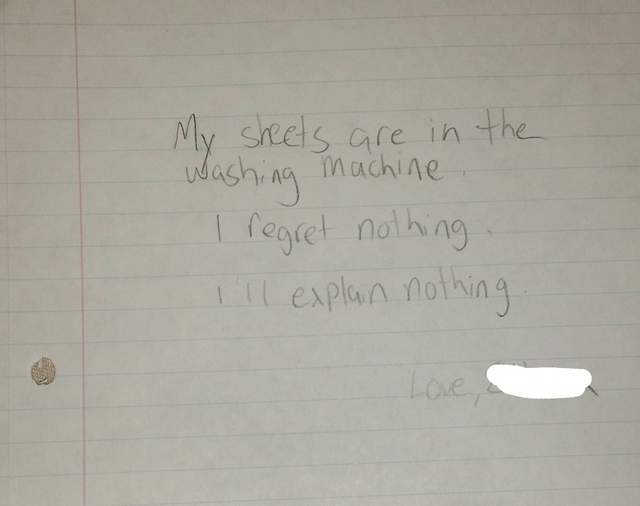 My sheets are in the
washing machine.
I regret nothing.
I'll explain nothing.
Love,